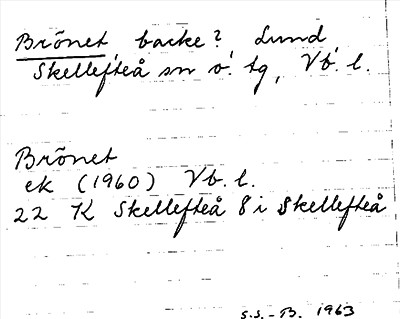 Brōnet, backe? Lund,
Skellefteå sn o. tg, Vb. l.
Brōnet
ek (1960) Vb. l.
22 K Skellefteå 8 i Skellefteå
S.S.-B. 1963